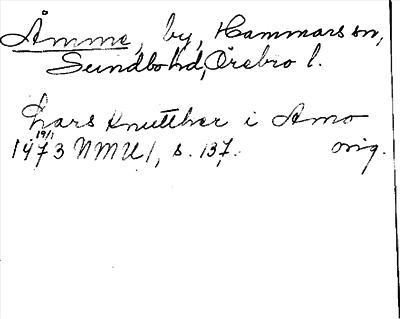 Åmme, by, Hammars sn,
Sundbo hd, Örebro l.
Lars Knutther i Amo
19/1
1473 NMU 1, s. 137. orig.